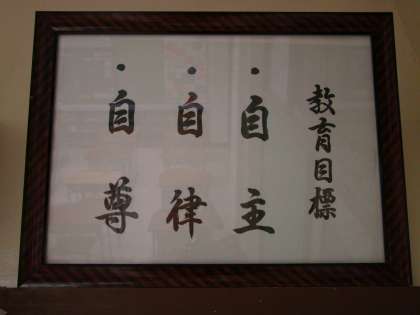 教育目標
・自主
・自律
・自尊